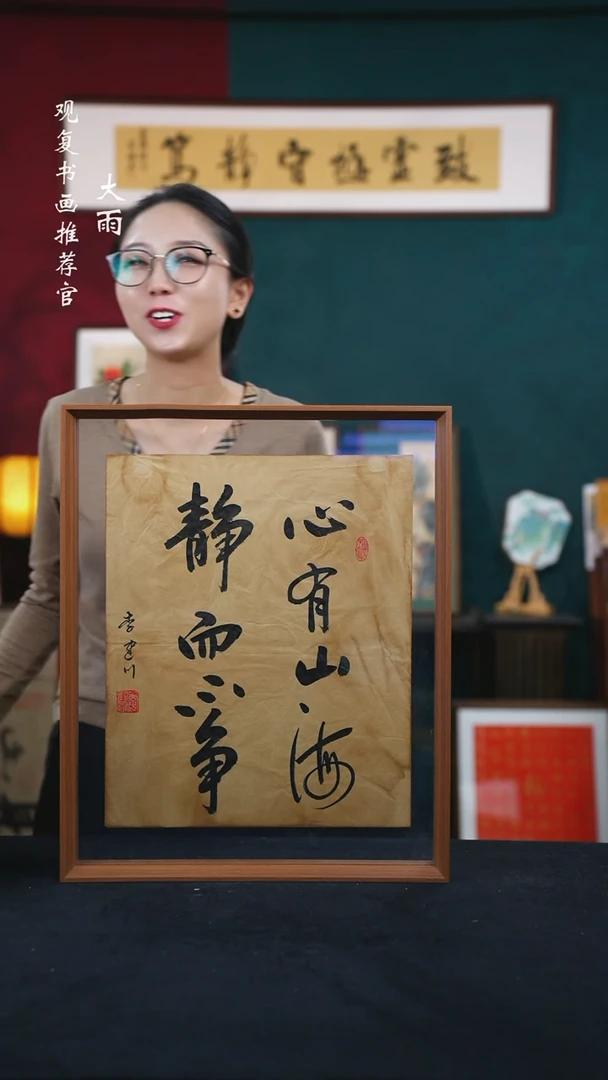 观复书画推荐官
大雨
致虚极守静笃
心有山海
静而不争
李建川